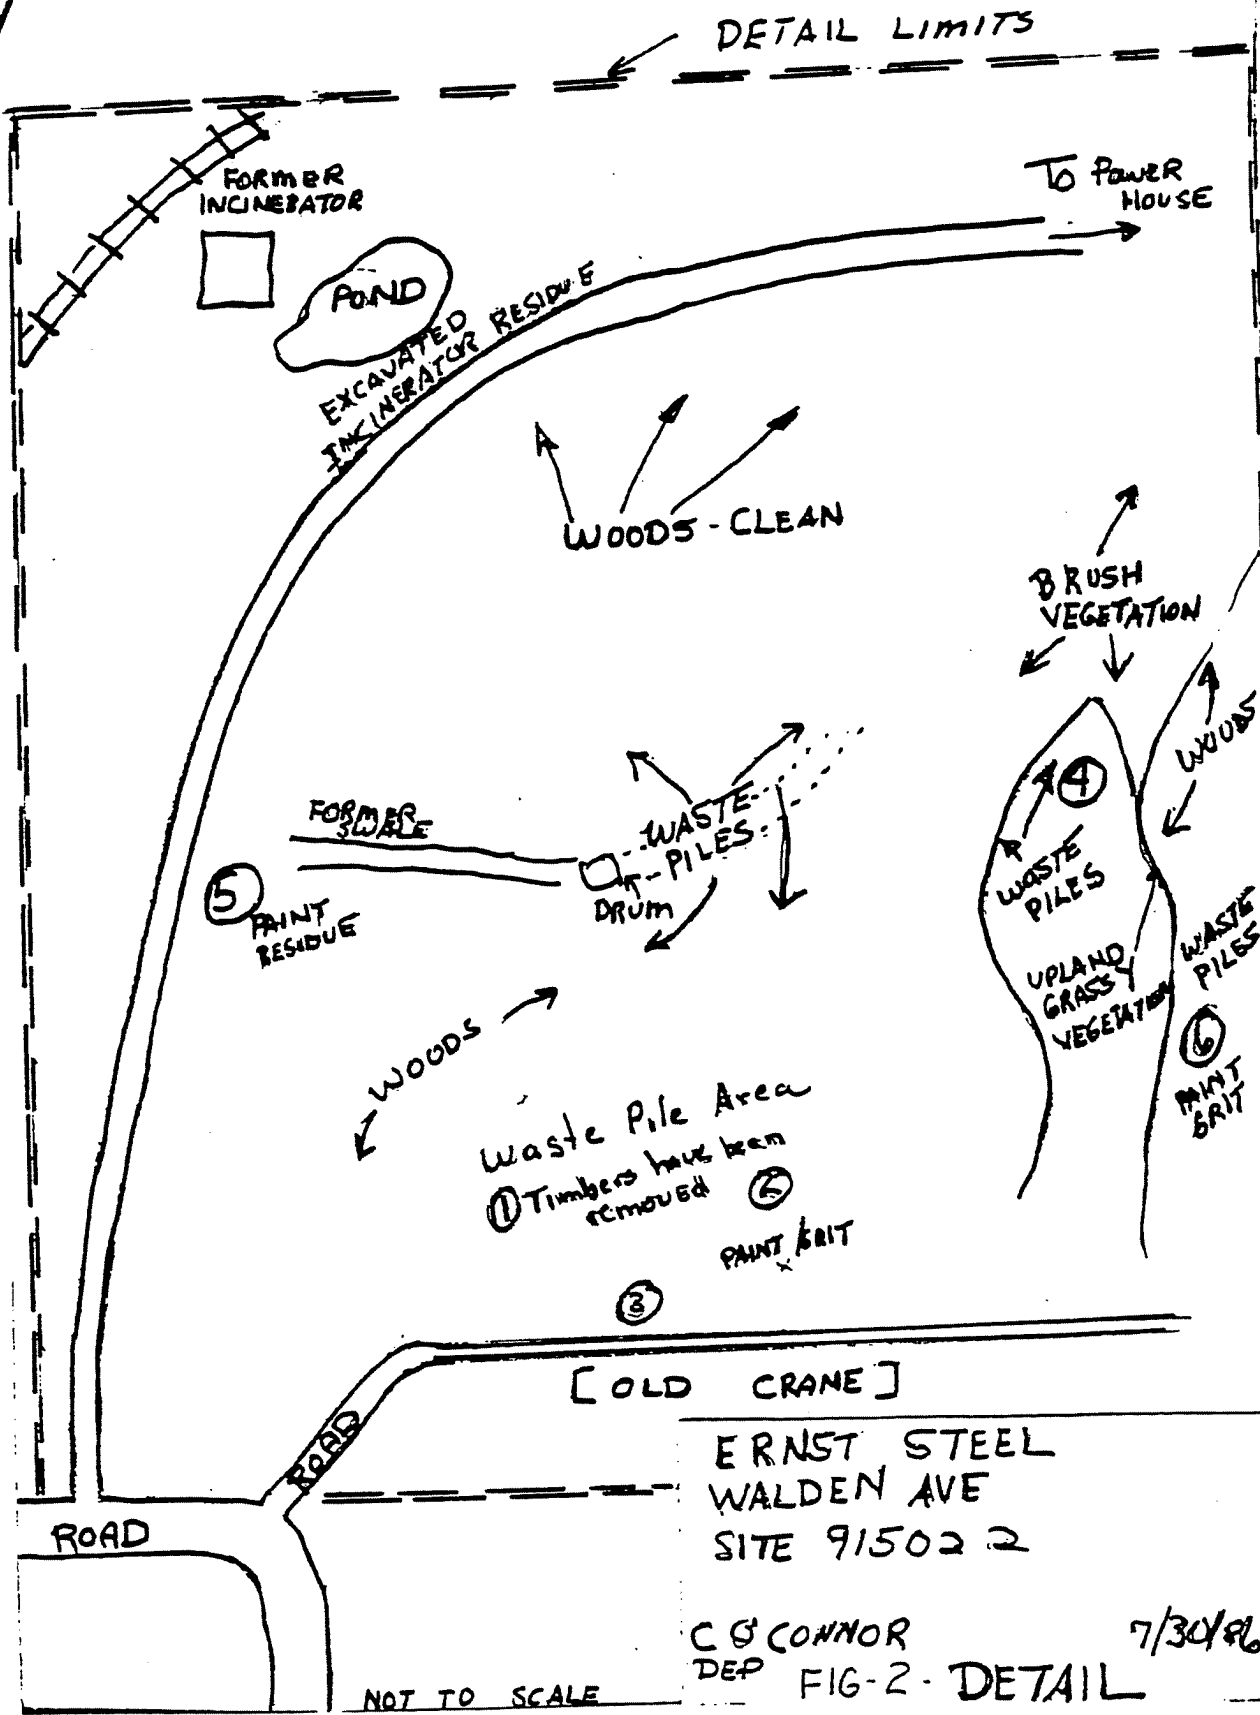 DETAIL LIMITS
FORMER
INCINERATOR
TO POWER
HOUSE
POND
EXCAVATED
INCINERATOR RESIDUE
WOODS - CLEAN
BRUSH
VEGETATION
WOODS
4
FORMER
SWALE
WASTE
PILES
DRUM
5
PAINT
RESIDUE
WASTE
PILES
UPLAND
GRASSY
VEGETATION
WASTE
PILES
6
PAINT
GRIT
WOODS
Waste Pile Area
1 Timbers have been
removed
2
PAINT/GRIT
3
[OLD CRANE]
ROAD
ROAD
ERNST STEEL
WALDEN AVE
SITE 915022
C O'CONNOR 7/30/86
DEP FIG-2 - DETAIL
NOT TO SCALE